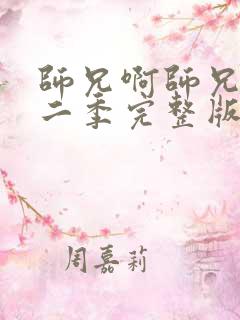 師兄啊師兄
二季完整版
周嘉莉